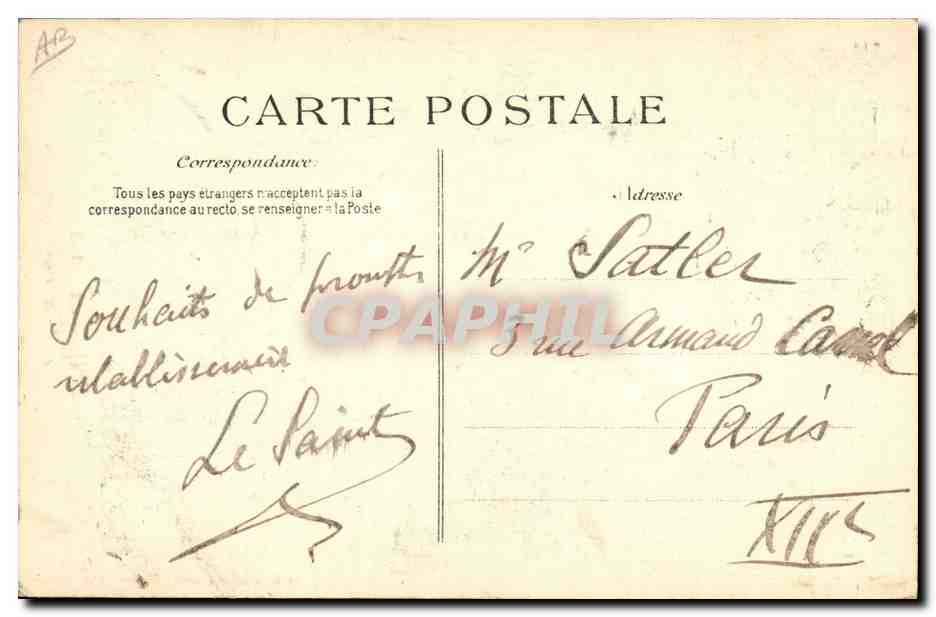 AB
CARTE POSTALE
Correspondance:
Tous les pays étrangers n'acceptent pas la
correspondance au recto, se renseigner à la Poste
Souhaits de prompt
rétablissement
Le Saint
Adresse
Mr Satler
3 rue Armand Carrel
Paris
XIXe
CPAPHIL